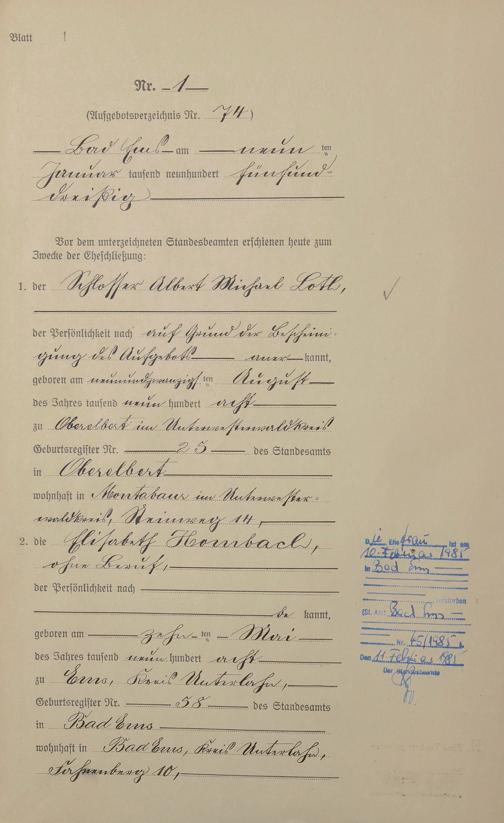 Blatt 1
Nr. 1
(Aufgebotsverzeichnis Nr. 74)
Bad Ems am neun ten
Januar tausend neunhundert fünfund-
dreißig
Vor dem unterzeichneten Standesbeamten erschienen heute zum
Zwecke der Eheschließung:
1. der Schlosser Albert Michael Lotl,
der Persönlichkeit nach auf Grund der Bescheini-
gung des Aufgebots aner kannt,
geboren am neunundzwanzigsten August
des Jahres tausend neun hundert acht
zu Oberelbert im Unterwesterwaldkreis
Geburtsregister Nr. 25 des Standesamts
in Oberelbert
wohnhaft in Montabaur im Unterwester-
waldkreis, Steinweg 14,
2. die Elisabeth Hombach,
ohne Beruf,
der Persönlichkeit nach
be kannt,
geboren am zehn ten Mai
des Jahres tausend neun hundert acht
zu Ems, Kreis Unterlahn,
Geburtsregister Nr. 58 des Standesamts
in Bad Ems
wohnhaft in Bad Ems, Kreis Unterlahn,
Fahnenberg 10,
Die Ehefrau ist am
10. Februar 1985
in Bad Ems
verstorben
(St. Amt Bad Ems
Nr. 15/1985
Den 11. Februar 1985
Der Standesbeamte